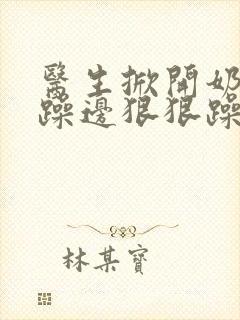 醫生掀開奶
躁邊狠狠躁
林某寶